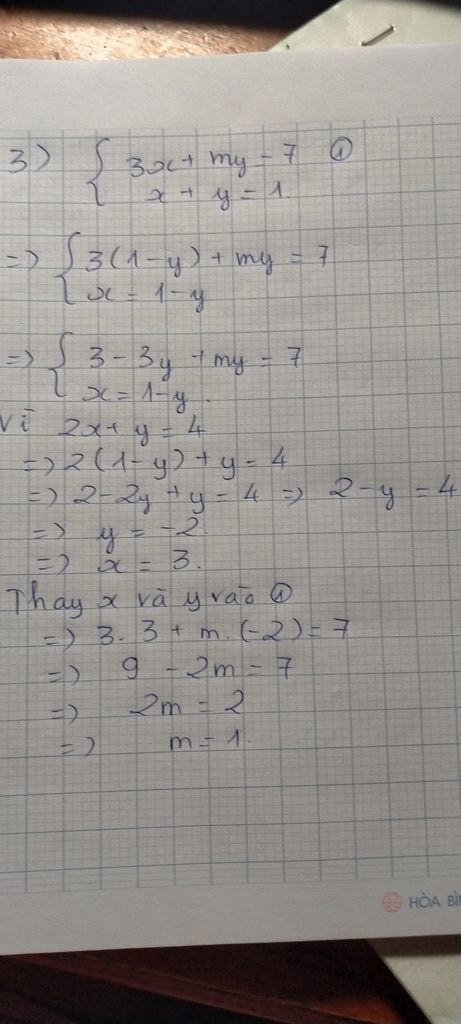 3) { 3x + my = 7 ①
x + y = 1.
=> { 3(1-y) + my = 7
x = 1-y
=> { 3 - 3y + my = 7
x = 1-y.
Vì 2x + y = 4
=> 2(1-y) + y = 4
=> 2 - 2y + y = 4 => 2 - y = 4
=> y = -2.
=> x = 3.
Thay x và y vào ①
=> 3. 3 + m. (-2) = 7
=> 9 - 2m = 7
=> 2m = 2
=> m = 1.
HÒA BÌN